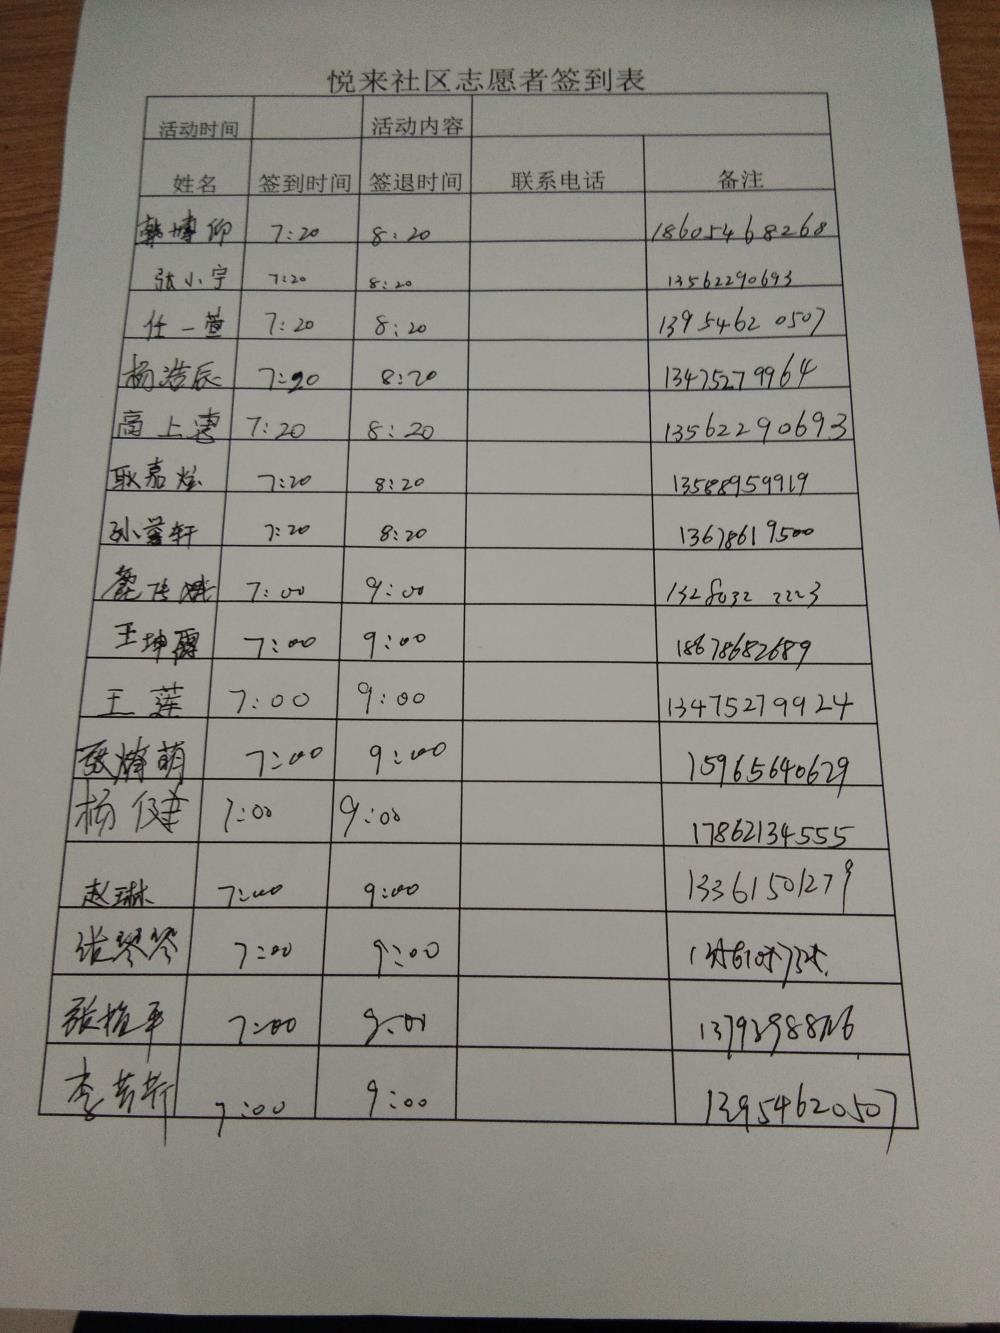 悦来社区志愿者签到表
活动时间 活动内容
姓名 签到时间 签退时间 联系电话 备注
韩博仰 7:20 8:20 18605468268
张小宇 7:20 8:20 13562290693
任一萱 7:20 8:20 13954620507
杨浩辰 7:20 8:20 13475279964
高上惠 7:20 8:20 13562290693
耿嘉炫 7:20 8:20 13588959919
孙蓥轩 7:20 8:20 13678619500
7:00 9:00 13280322223
王坤霞 7:00 9:00 18678682689
王莲 7:00 9:00 13475279924
张 萌 7:00 9:00 15965640629
杨健 7:00 9:00 17862134555
赵琳 7:00 9:00 13361501279
张琴琴 7:00 9:00
张 平 7:00 9:00
李 7:00 9:00 13954620507